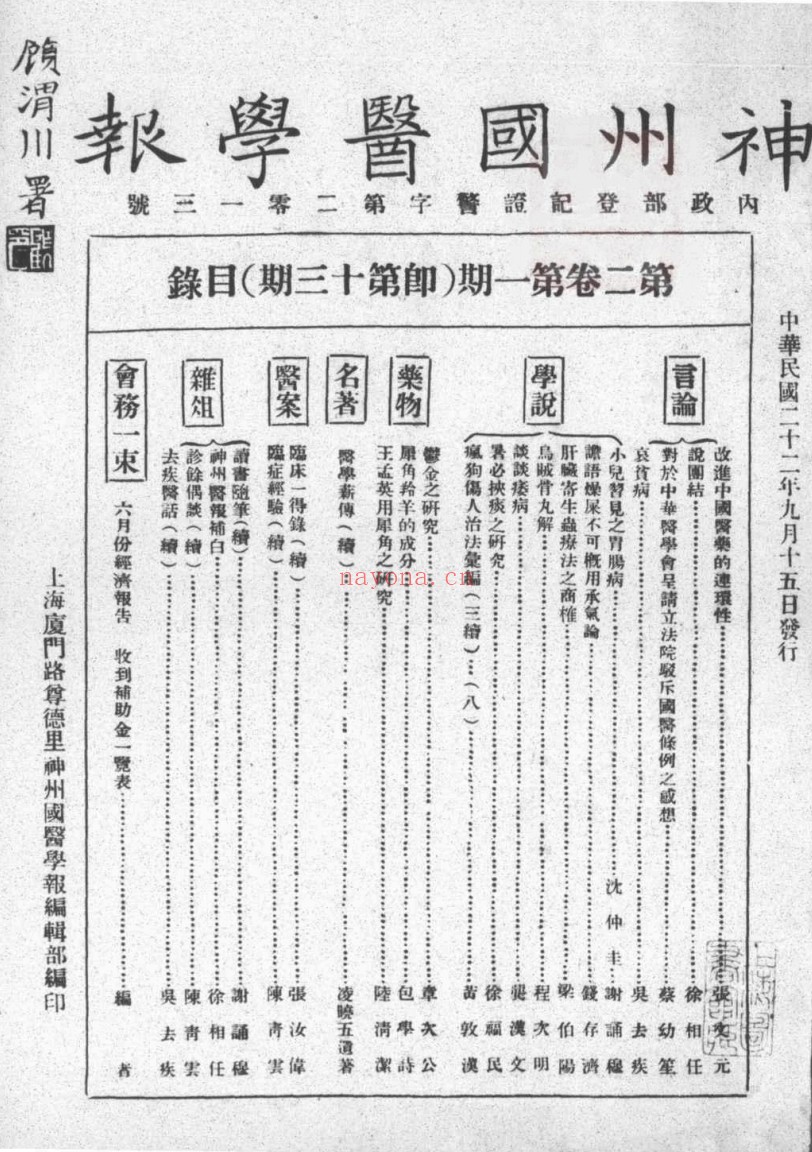 神州國醫學報
內政部登記證警字第二零一三號
顧渭川署
中華民國二十二年九月十五日發行
第二卷第一期(即第十三期)目錄
言論
改進中國醫藥的連環性 張文元
說團結 徐相任
對於中華醫學會呈請立法院駁斥國醫條例之感想 蔡幼笙
哀貧病 吳去疾
學說
小兒習見之胃腸病 沈仲圭 謝誦穆
譫語燥屎不可概用承氣論 錢存濟
肝臟寄生蟲療法之商榷 梁伯陽
烏賊骨丸解 程次明
談談痿病 龔漢文
暑必挾痰之研究 徐福民
瘋狗傷人治法彙編(三續)(八) 黃敦漢
藥物
鬱金之研究 章次公
犀角羚羊的成分 包學詩
王孟英用犀角之研究 陸清潔
名著
醫學薪傳(續) 凌曉五遺著
醫案
臨床一得錄(續) 張汝偉
臨症經驗(續) 陳靑雲
雜俎
讀書隨筆(續) 謝誦穆
神州醫報補白 徐相任
診餘偶談(續) 陳靑雲
去疾醫話(續) 吳去疾
會務一束
六月份經濟報告 收到補助金一覽表 編者
上海廈門路尊德里神州國醫學報編輯部編印
nayona.cn